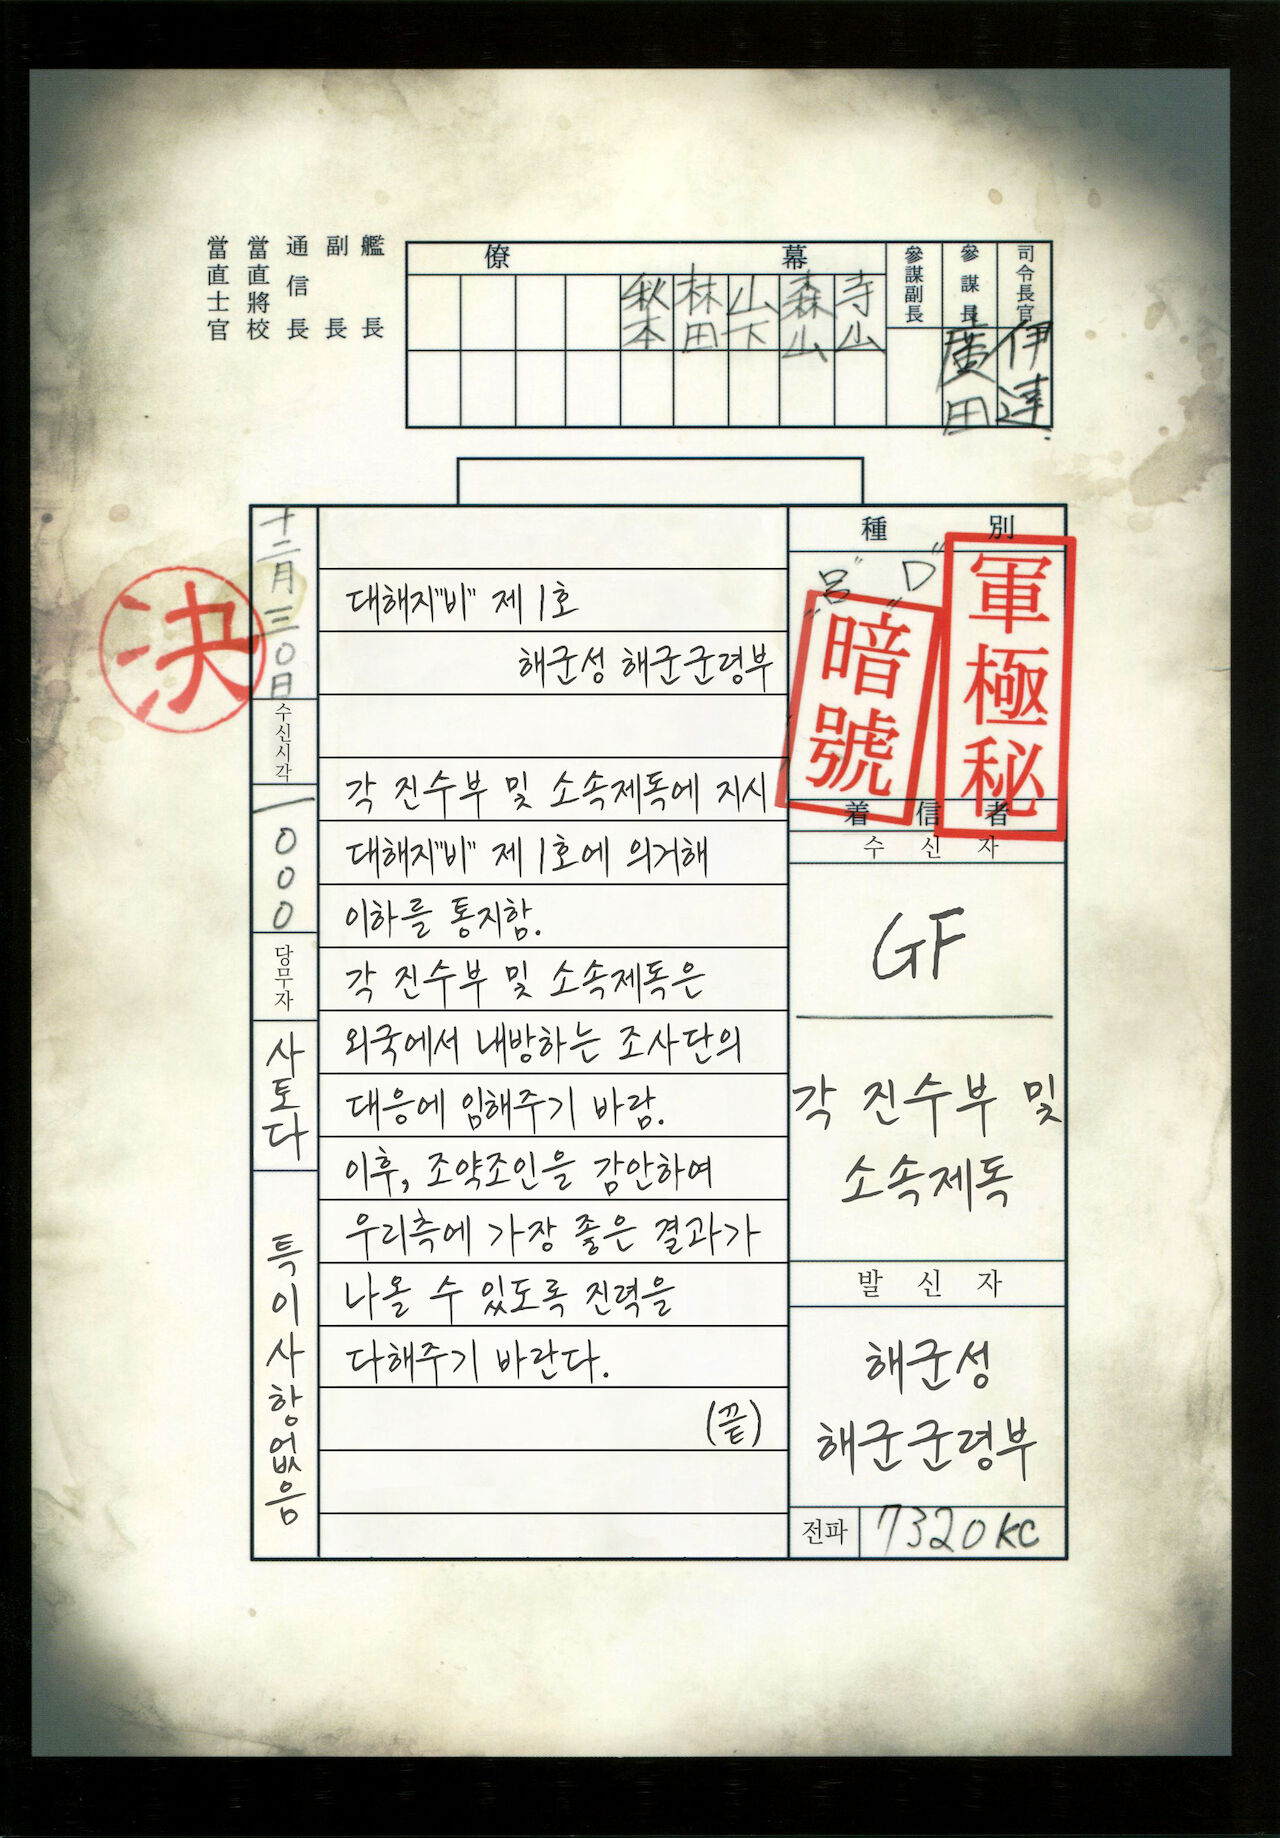 司令長官
伊達
參謀長
廣田
參謀副長
幕僚
寺山
森山
山下
林田
秋本
艦長
副長
通信長
當直將校
當直士官
種別
"呂" "D"
軍極秘
暗號
着信者
수신자
GF
각 진수부 및
소속제독
발신자
해군성
해군군령부
전파
7320KC
대해지"비" 제 1호
해군성 해군군령부
각 진수부 및 소속제독에 지시
대해지"비" 제 1호에 의거해
이하를 통지함.
각 진수부 및 소속제독은
외국에서 내방하는 조사단의
대응에 임해주기 바람.
이후, 조약조인을 감안하여
우리측에 가장 좋은 결과가
나올 수 있도록 진력을
다해주기 바란다.
(끝)
十二月三〇日
수신시각
一〇〇〇
당무자
사토다
특이사항없음
決